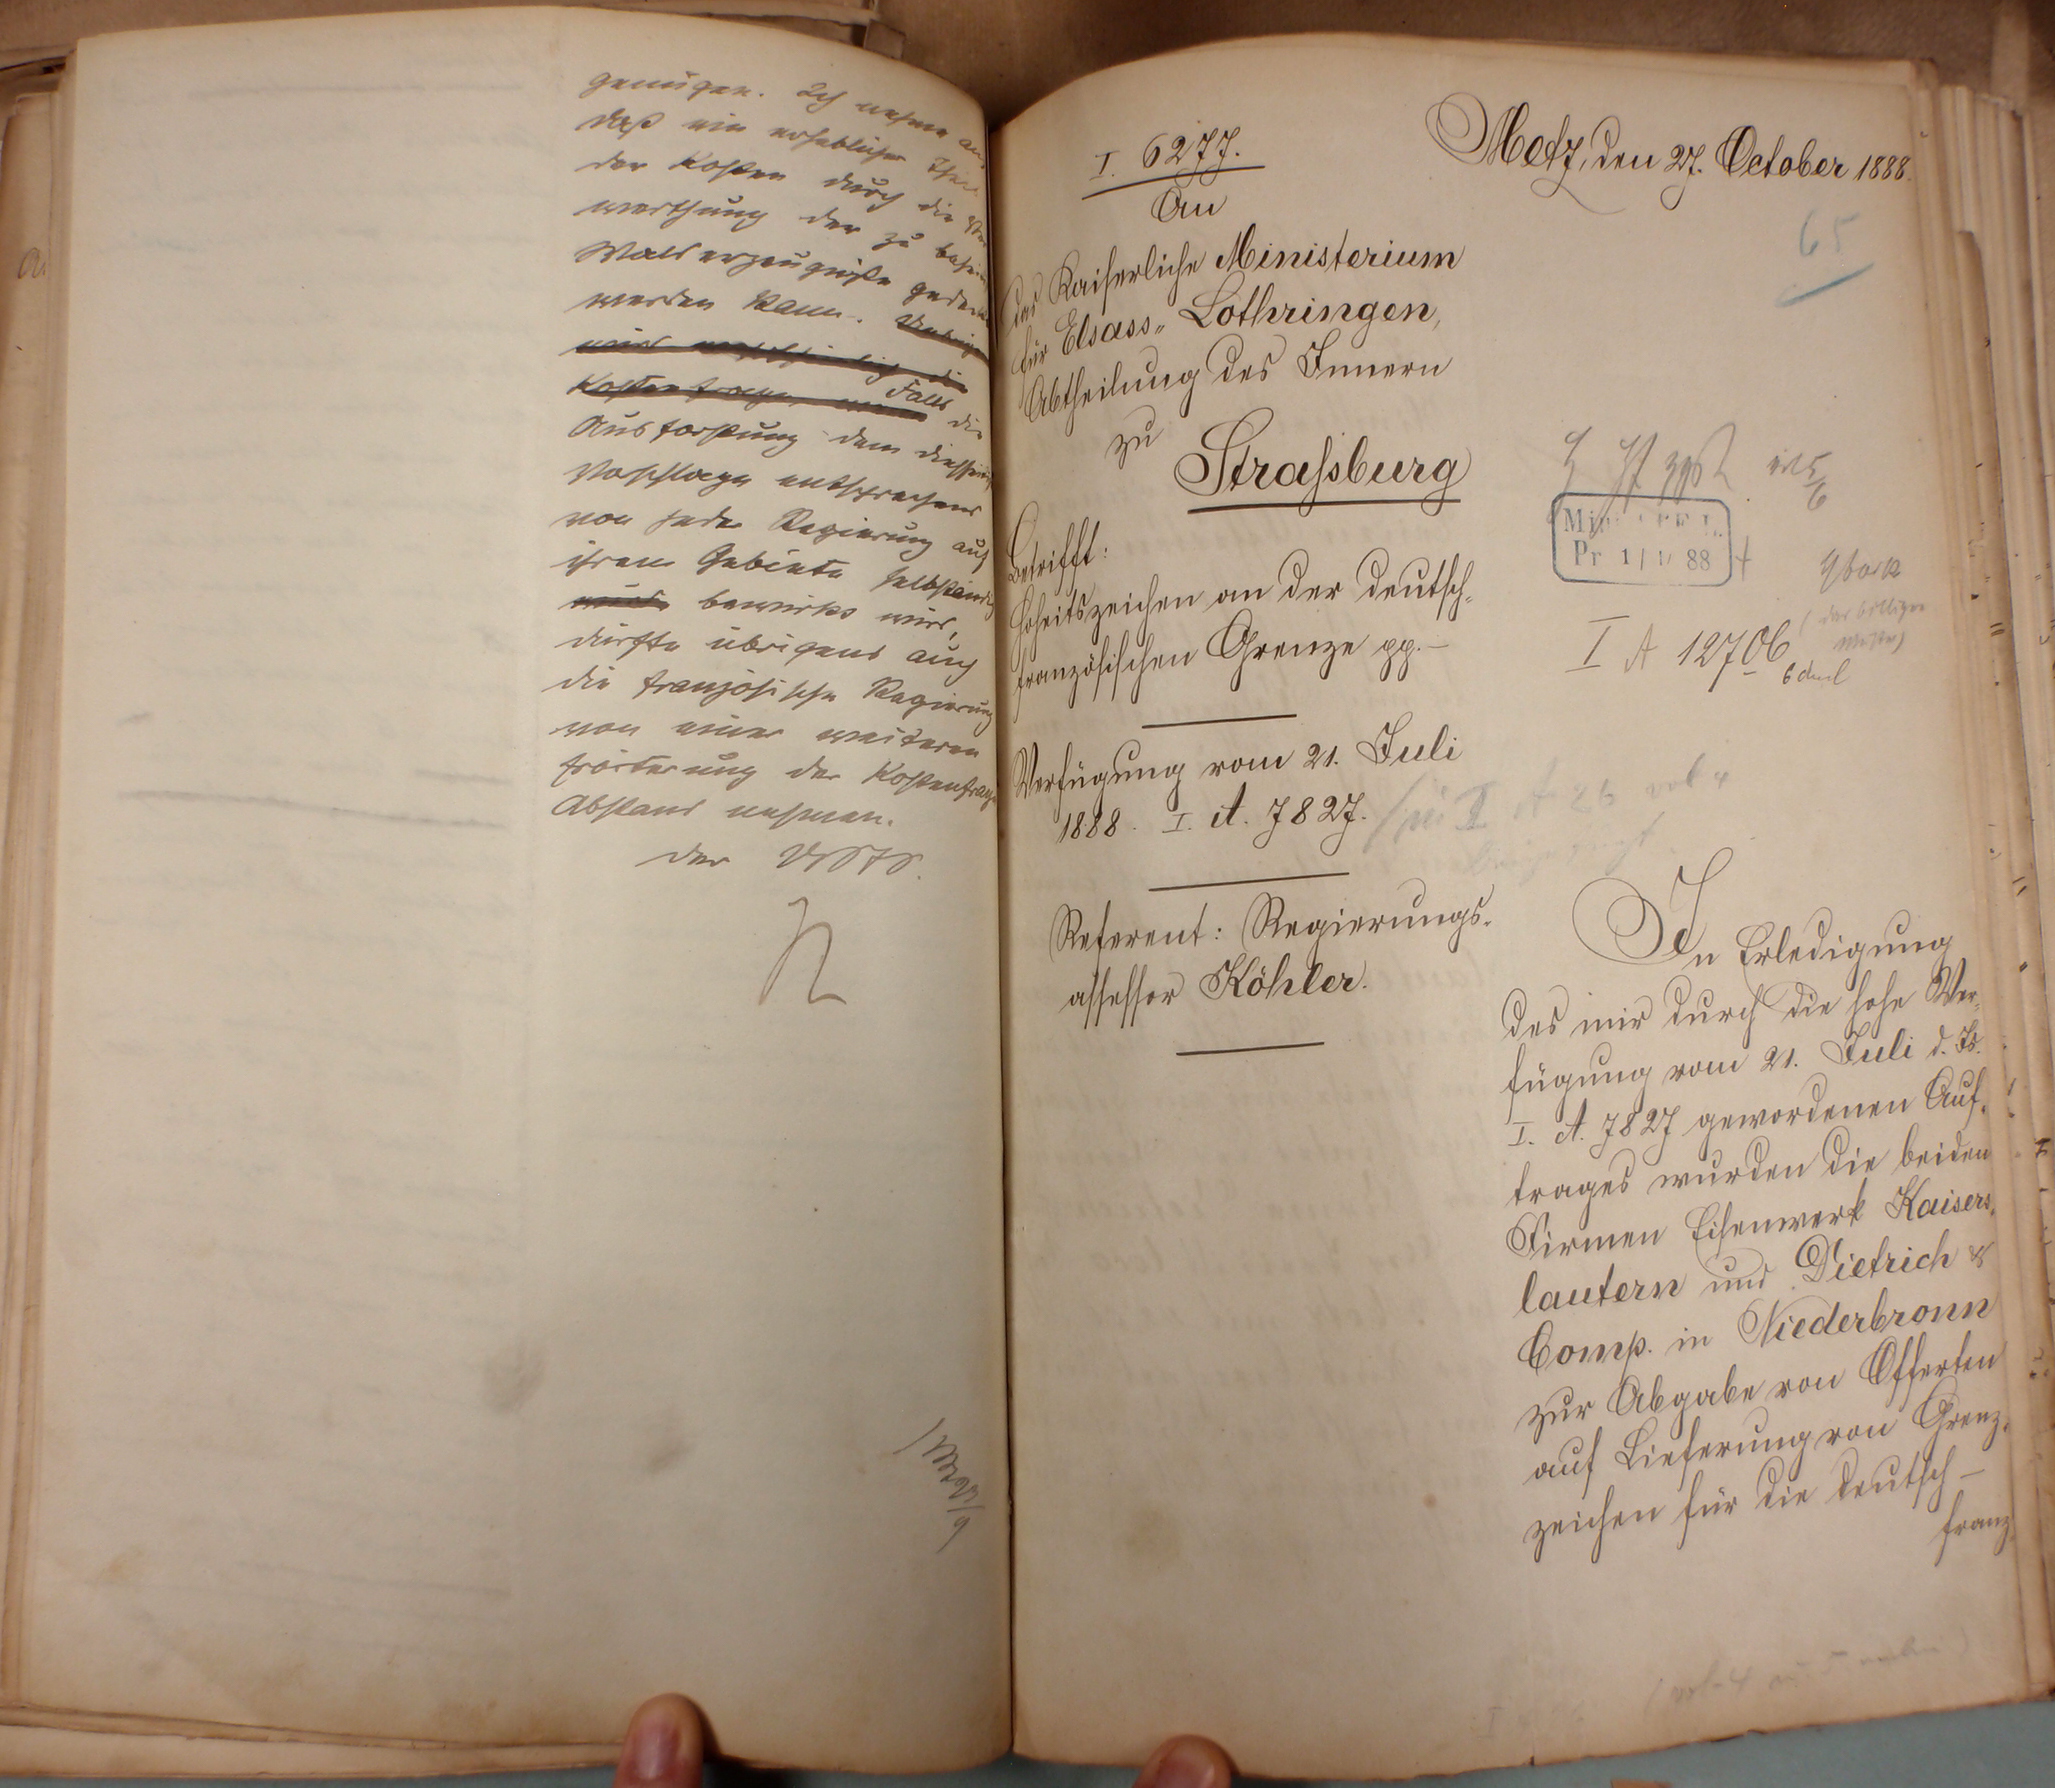 genügen. Ich nehme an,
daß ein erheblicher Theil
der Kosten durch die Ver
werthung der zu
Walderzeugnisse gedeckt
werden kann.
Falls die
Ausforstung dem diesseit
Vorschlage entsprechend
von jeder Regierung auf
ihrem Gebiete selbständig
bewirkt wird,
dürfte übrigens auch
die französische Regierung
von einer weiteren
Erörterung der Kostenfrage
Abstand nehmen.
der
I. 6277.
Metz, den 27. October 1888.
65
An
das Kaiserliche Ministerium
für Elsass-Lothringen,
Abtheilung des Innern
zu
Strassburg
Pr 1/11 88
I A 12706
Betrifft:
Hoheitszeichen an der deutsch-
französischen Grenze pp. –
Verfügung vom 21. Juli
1888. I. A. 7827.
Referent: Regierungs-
assessor Köhler.
In Erledigung
des mir durch die hohe Ver-
fügung vom 21. Juli d. Js.
I. A. 7827 gewordenen Auf-
trages wurden die beiden
Firmen Eisenwerk Kaisers-
lautern und Dietrich &
Comp. in Niederbronn
zur Abgabe von Offerten
auf Lieferung von Grenz-
zeichen für die deutsch –
franz.